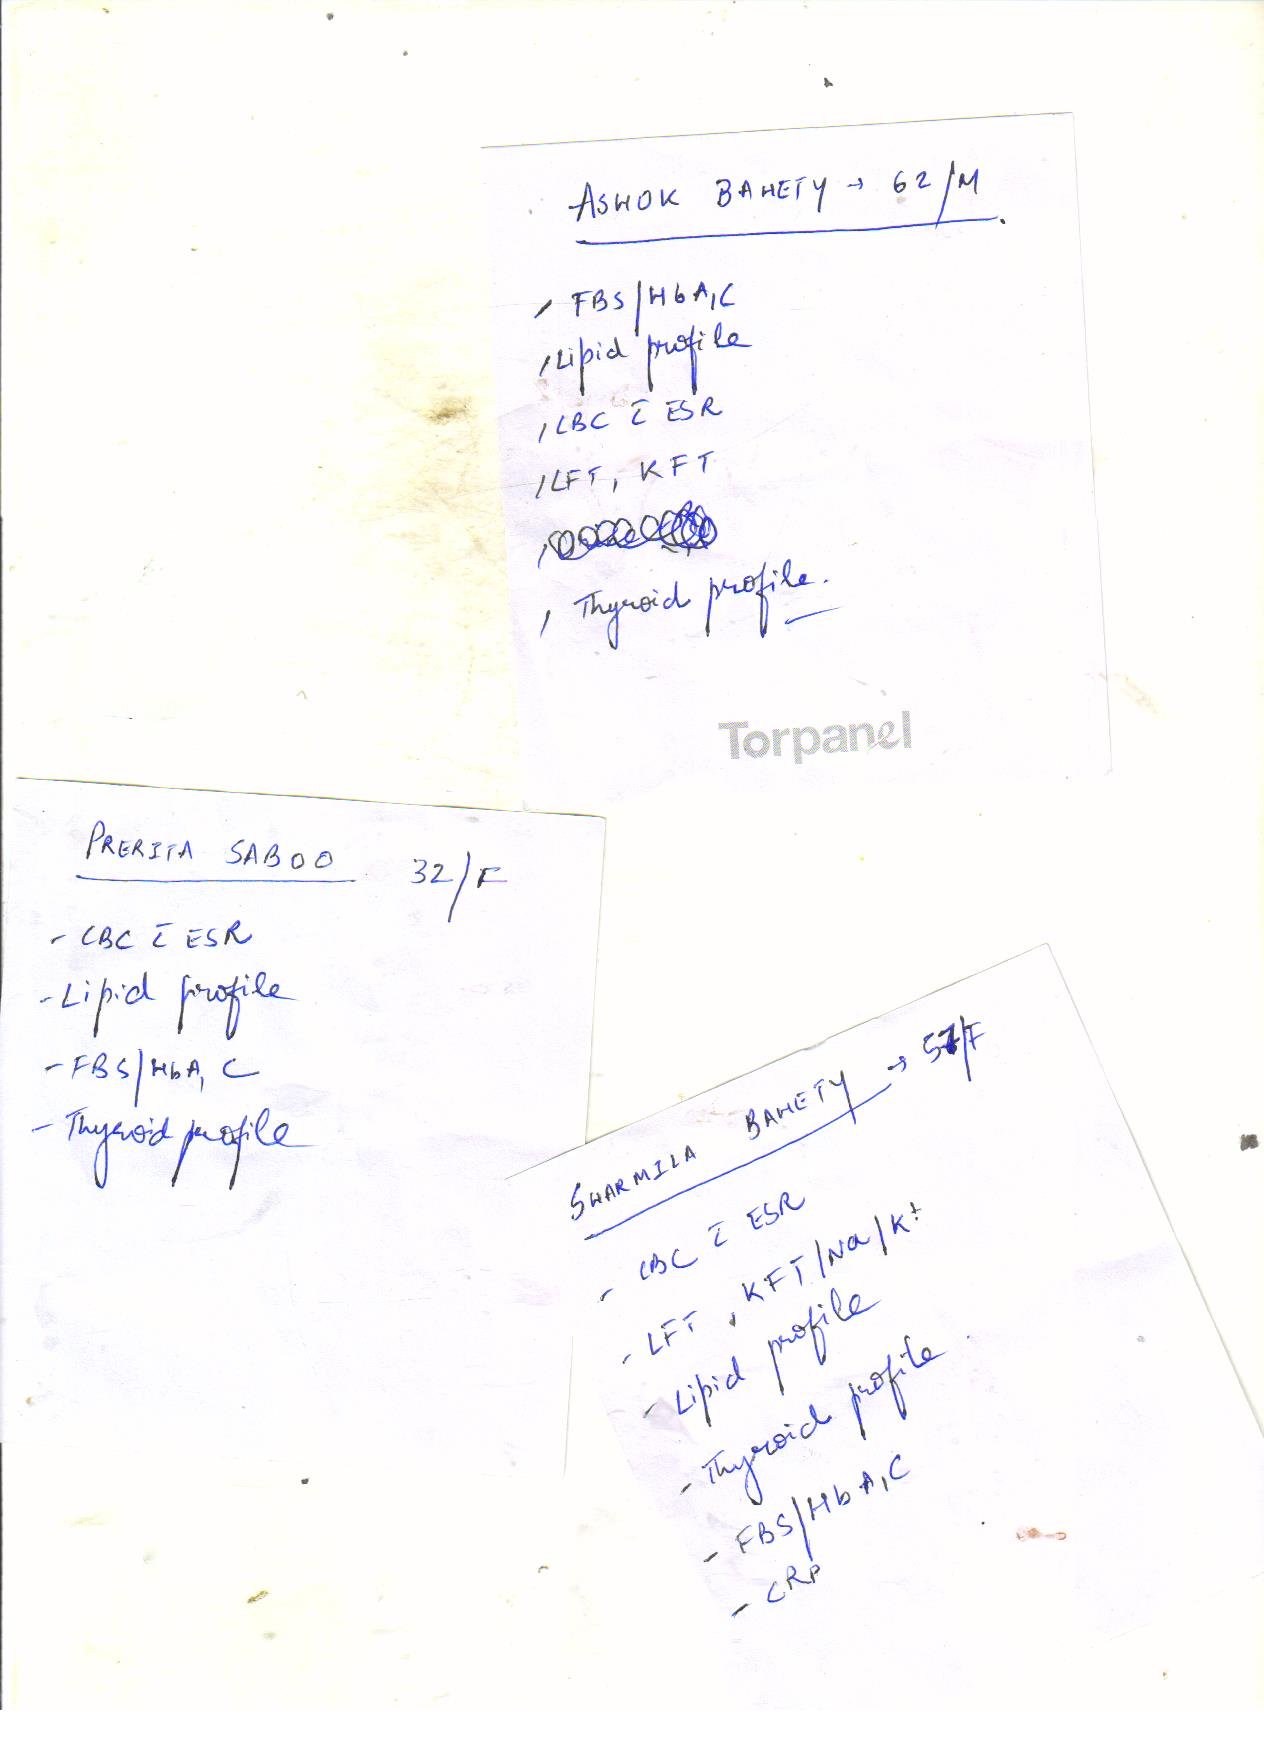 ASHOK BAHETY → 62/M
, FBS/HbA1C
, Lipid profile
, CBC c̄ ESR
, LFT, KFT
, Thyroid profile.
Torpanel
PRERITA SABOO 32/F
- CBC c̄ ESR
- Lipid profile
- FBS/HbA1C
- Thyroid profile
SHARMILA BAHETY → 57/F
- CBC c̄ ESR
- LFT, KFT/Na/K+
- Lipid profile
- Thyroid profile
- FBS/HbA1C
- CRP